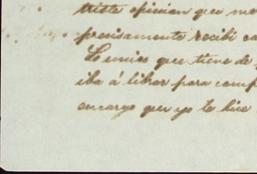 triste opinion que me
precisamente recibí ca
Lo unico que tiene de
iba á librar para comp
encargo que yo le hice